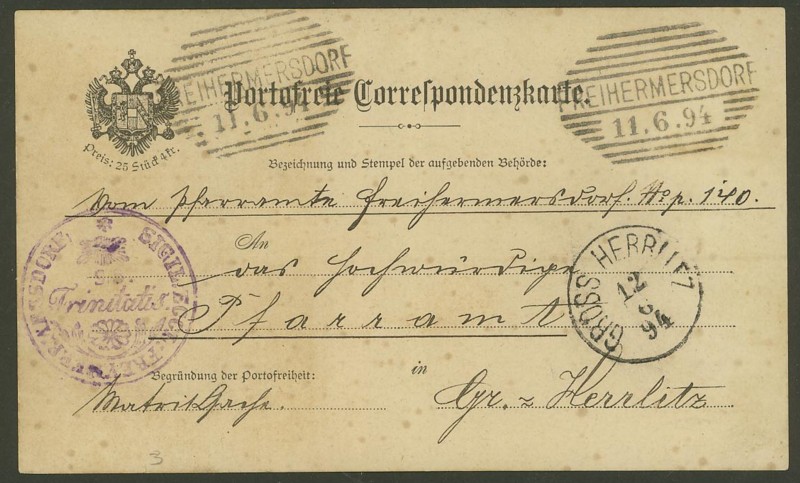 FREIHERMERSDORF
11.6.94
FREIHERMERSDORF
11.6.94
Portofreie Correspondenzkarte.
Preis: 25 Stück 4kr.
Bezeichnung und Stempel der aufgebenden Behörde:
Vom Pfarramte Freihermersdorf. No p. 140.
An
das hochwürdige
Pfarramt
GROSS HERRLITZ
12
6
94
Trinitatis
Begründung der Portofreiheit:
in
Matriksache.
Gr. = Herrlitz
3